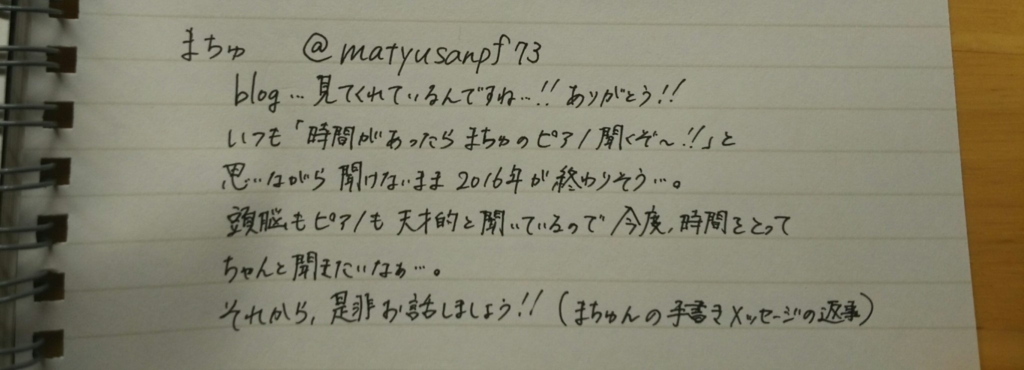 まちゅ @matyusanpf73
blog… 見てくれているんですね…!! ありがとう!!
いつも「時間があったら まちゅのピアノ聞くぞ〜!!」と
思いながら 聞けないまま 2016年が 終わりそう…。
頭脳もピアノも 天才的と聞いているので 今度、時間をとって
ちゃんと聞きたいなぁ…。
それから、是非お話しましょう!! (まちゅんの手書きメッセージの返事)